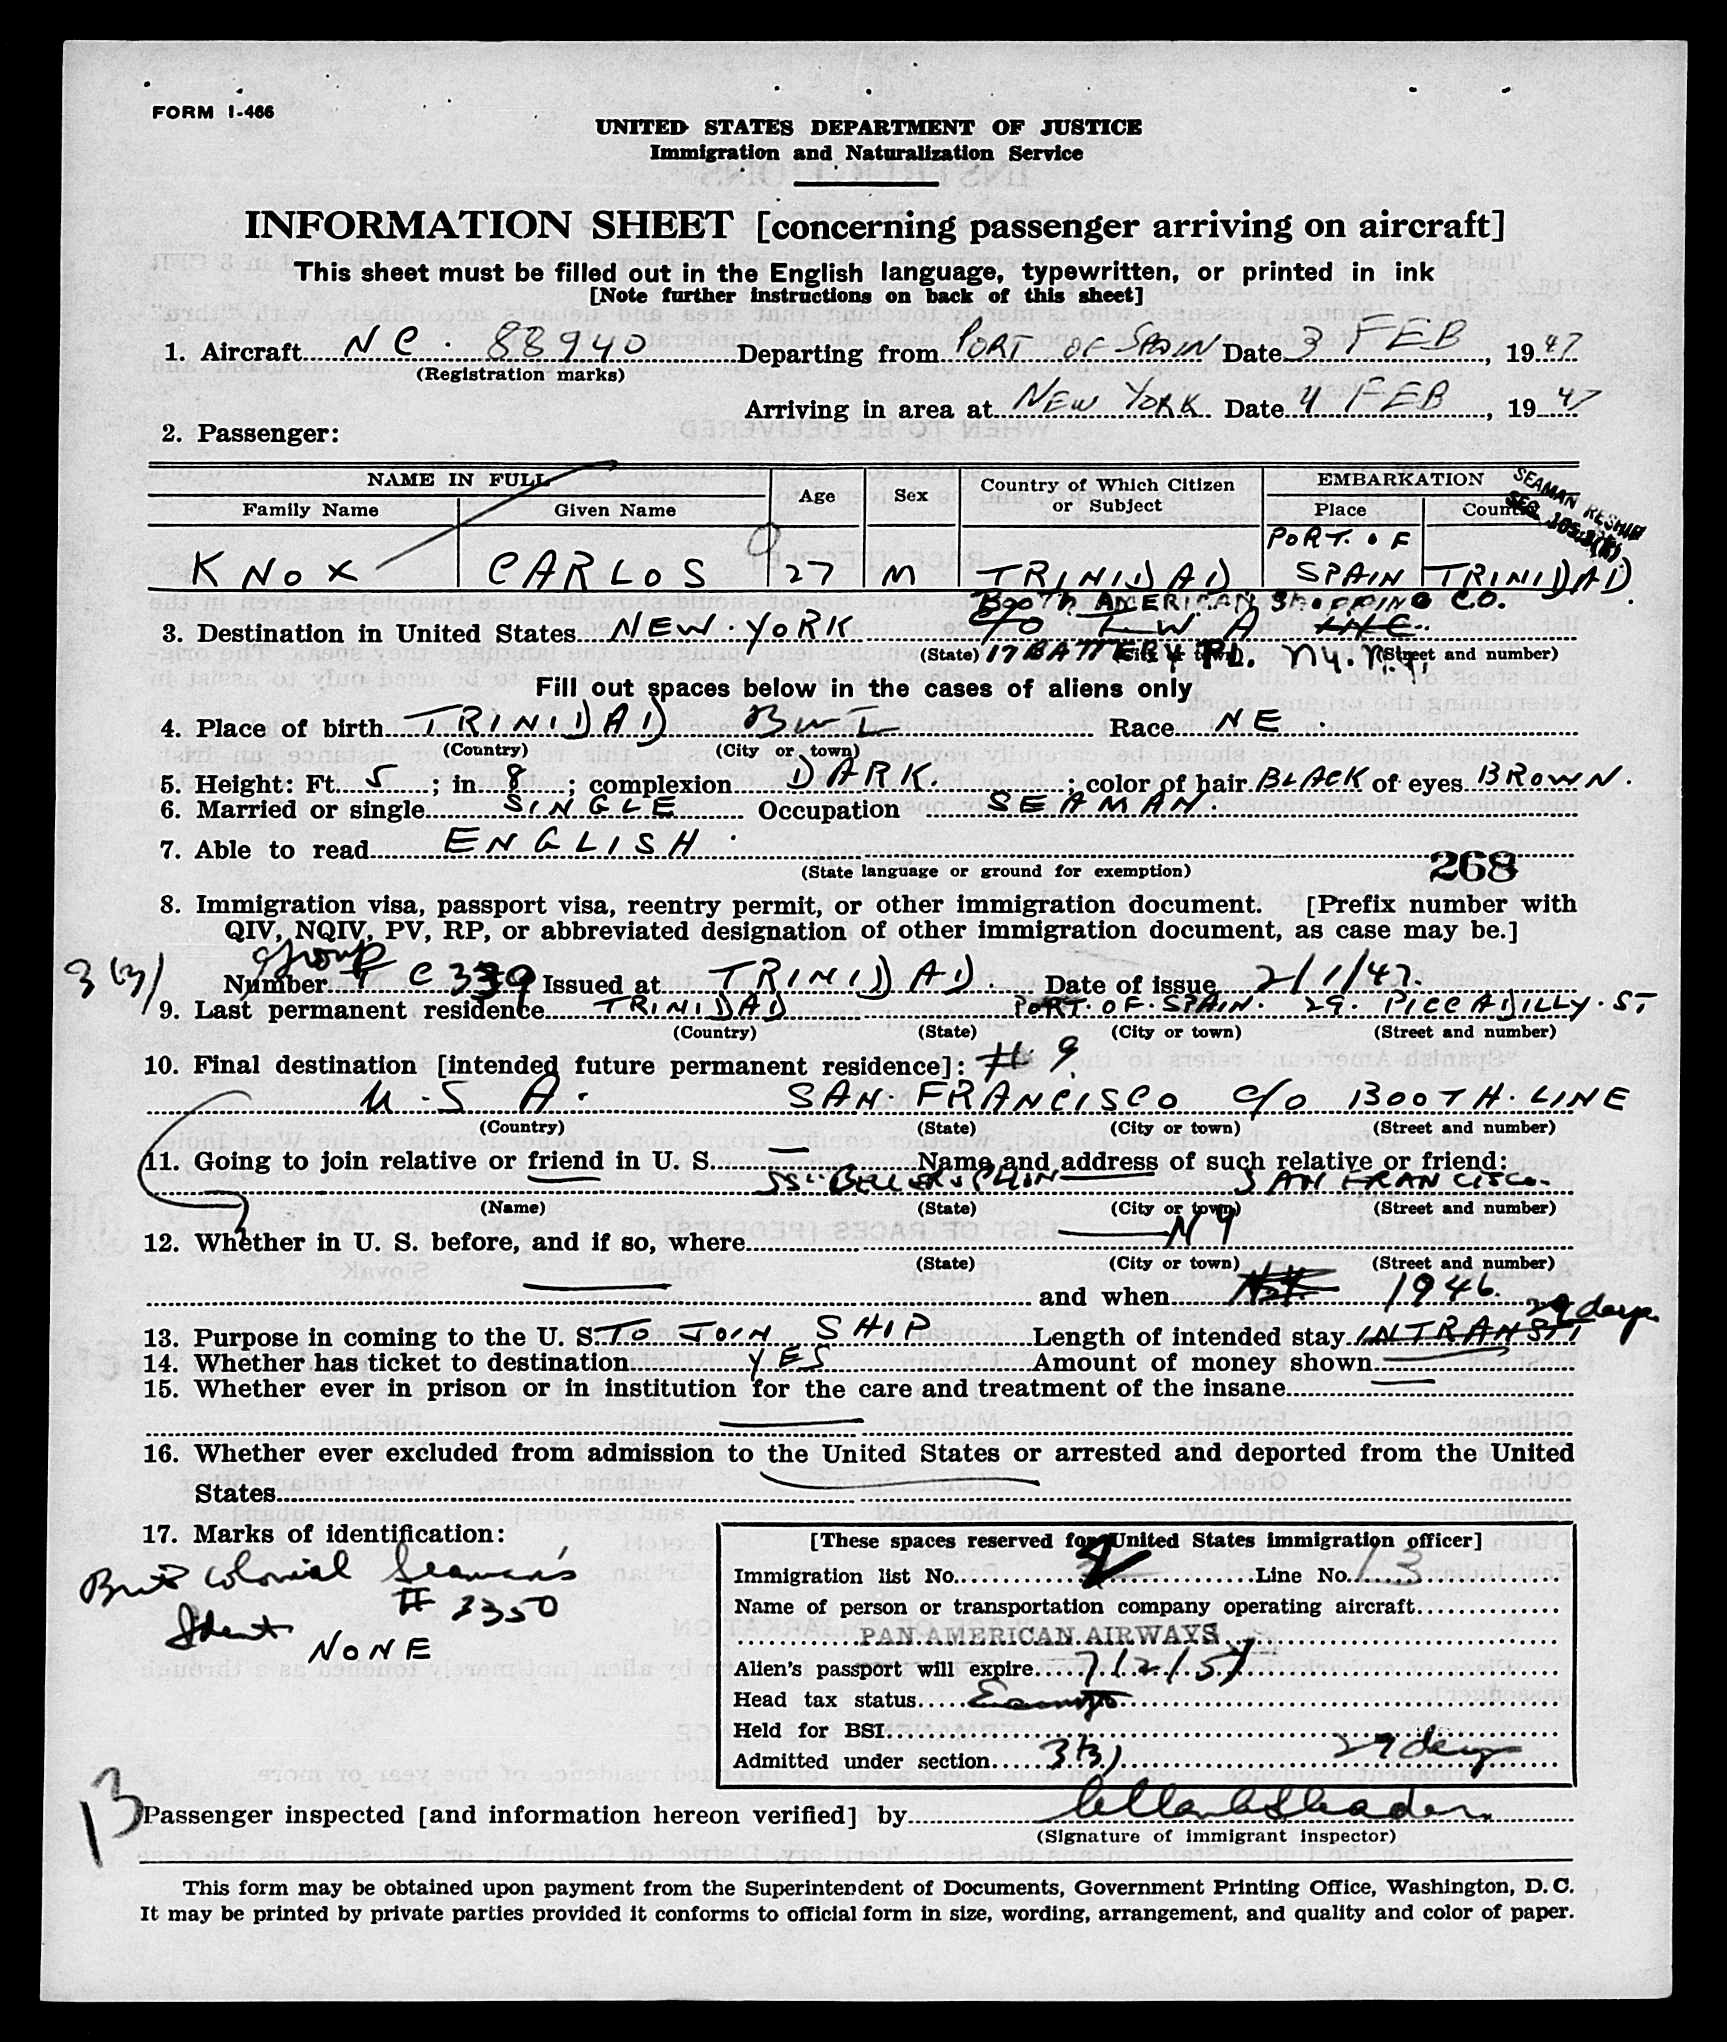 FORM I-466
UNITED STATES DEPARTMENT OF JUSTICE
Immigration and Naturalization Service
INFORMATION SHEET [concerning passenger arriving on aircraft]
This sheet must be filled out in the English language, typewritten, or printed in ink
[Note further instructions on back of this sheet]
1. Aircraft NC. 88940 Departing from PORT OF SPAIN Date 3 FEB, 1947
(Registration marks)
Arriving in area at NEW YORK Date 4 FEB, 1947
2. Passenger:
NAME IN FULL Age Sex Country of Which Citizen or Subject EMBARKATION
Family Name Given Name Place Country
SEAMAN RESHIP
SEC.
PORT. OF
KNOX CARLOS 27 M TRINIDAD SPAIN TRINIDAD
BOOTH AMERICAN SHIPPING CO.
3. Destination in United States NEW. YORK c/o
(State) 17 BATTERY PL. NY. N.Y. (City or town) (Street and number)
Fill out spaces below in the cases of aliens only
4. Place of birth TRINIDAD BWI Race NE.
(Country) (City or town)
5. Height: Ft. 5; in. 8; complexion DARK.; color of hair BLACK of eyes BROWN.
6. Married or single SINGLE Occupation SEAMAN.
7. Able to read ENGLISH.
(State language or ground for exemption) 268
8. Immigration visa, passport visa, reentry permit, or other immigration document. [Prefix number with
QIV, NQIV, PV, RP, or abbreviated designation of other immigration document, as case may be.]
group
3(3) Number C 339 Issued at TRINIDAD. Date of issue 2/1/47.
9. Last permanent residence TRINIDAD PORT. OF. SPAIN. 29. PICCADILLY. ST
(Country) (State) (City or town) (Street and number)
10. Final destination [intended future permanent residence]: # 9.
U.S A. SAN. FRANCISCO c/o BOOTH. LINE
(Country) (State) (City or town) (Street and number)
11. Going to join relative or friend in U. S. — Name and address of such relative or friend:
SS. BELLEROPHON SAN FRANCISCO.
(Name) (State) (City or town) (Street and number)
12. Whether in U. S. before, and if so, where NY
(State) (City or town) (Street and number)
and when 1946.
29 days
13. Purpose in coming to the U. S. TO JOIN SHIP Length of intended stay INTRANSIT
14. Whether has ticket to destination YES Amount of money shown —
15. Whether ever in prison or in institution for the care and treatment of the insane —
16. Whether ever excluded from admission to the United States or arrested and deported from the United
States
17. Marks of identification:
Brit Colonial Seaman's
Ident # 3350
NONE
[These spaces reserved for United States immigration officer]
Immigration list No. Line No. 13
Name of person or transportation company operating aircraft
PAN AMERICAN AIRWAYS
Alien's passport will expire 7/2/51
Head tax status Exempt
Held for BSI
Admitted under section 3(3) 29 days
13
Passenger inspected [and information hereon verified] by
(Signature of immigrant inspector)
This form may be obtained upon payment from the Superintendent of Documents, Government Printing Office, Washington, D. C.
It may be printed by private parties provided it conforms to official form in size, wording, arrangement, and quality and color of paper.